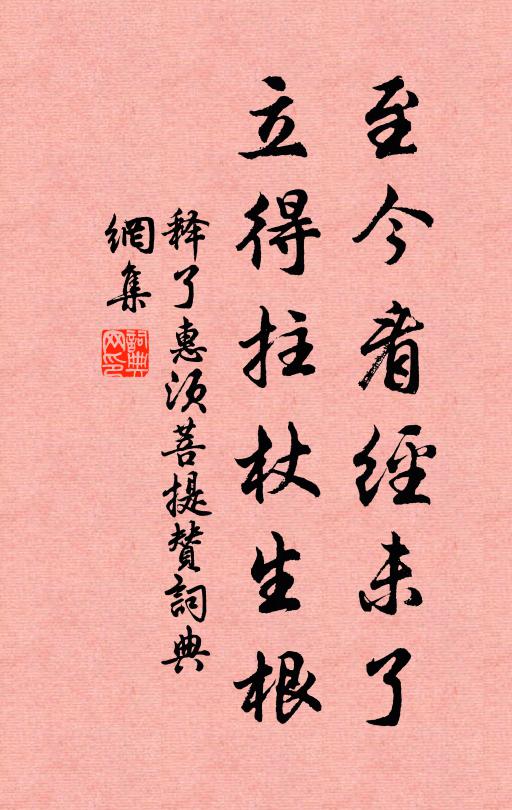 至今看經未了
立得拄杖生根
释了惠须菩提赞詞典
網集
詞典網印